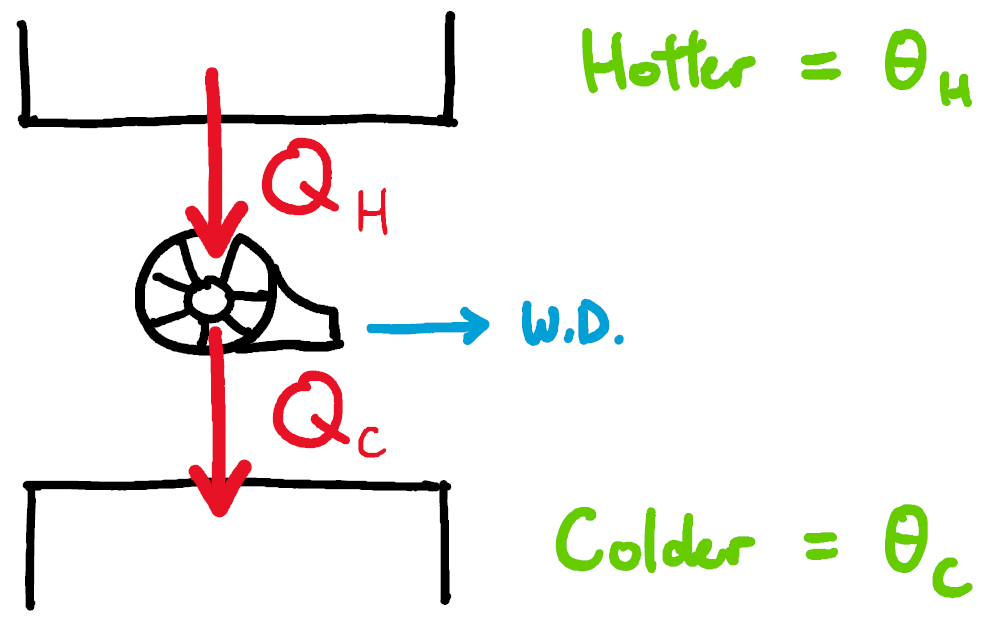 Hotter = θH
QH
W.D.
QC
Colder = θC